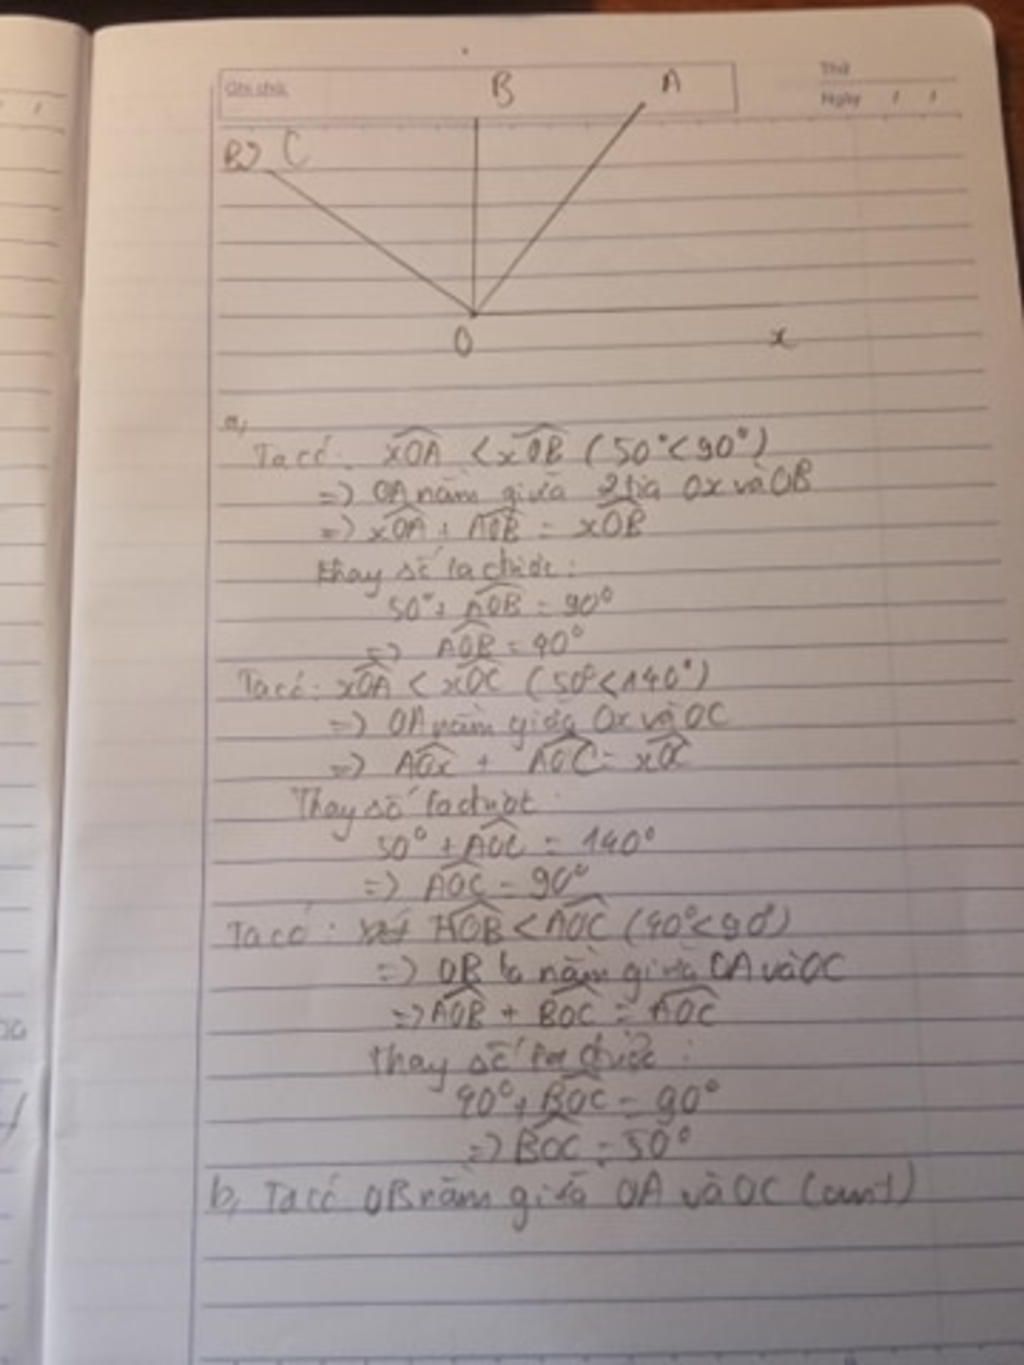 Ghi chú:
Thứ
Ngày / /
B A
B) C
O x
a,
Ta có: xOA < xOB (50° < 90°)
=> OA nằm giữa 2 tia Ox và OB
=> xOA + AOB = xOB
thay số ta được:
50° + AOB = 90°
=> AOB = 40°
Ta có: xOA < xOC (50° < 140°)
=> OA nằm giữa Ox và OC
=> AOx + AOC = xOC
Thay số ta được
50° + AOC = 140°
=> AOC = 90°
Ta có: AOB < AOC (40° < 90°)
=> OB nằm giữa OA và OC
=> AOB + BOC = AOC
thay số ta được:
40° + BOC = 90°
=> BOC = 50°
b, Ta có OB nằm giữa OA và OC (cmt)